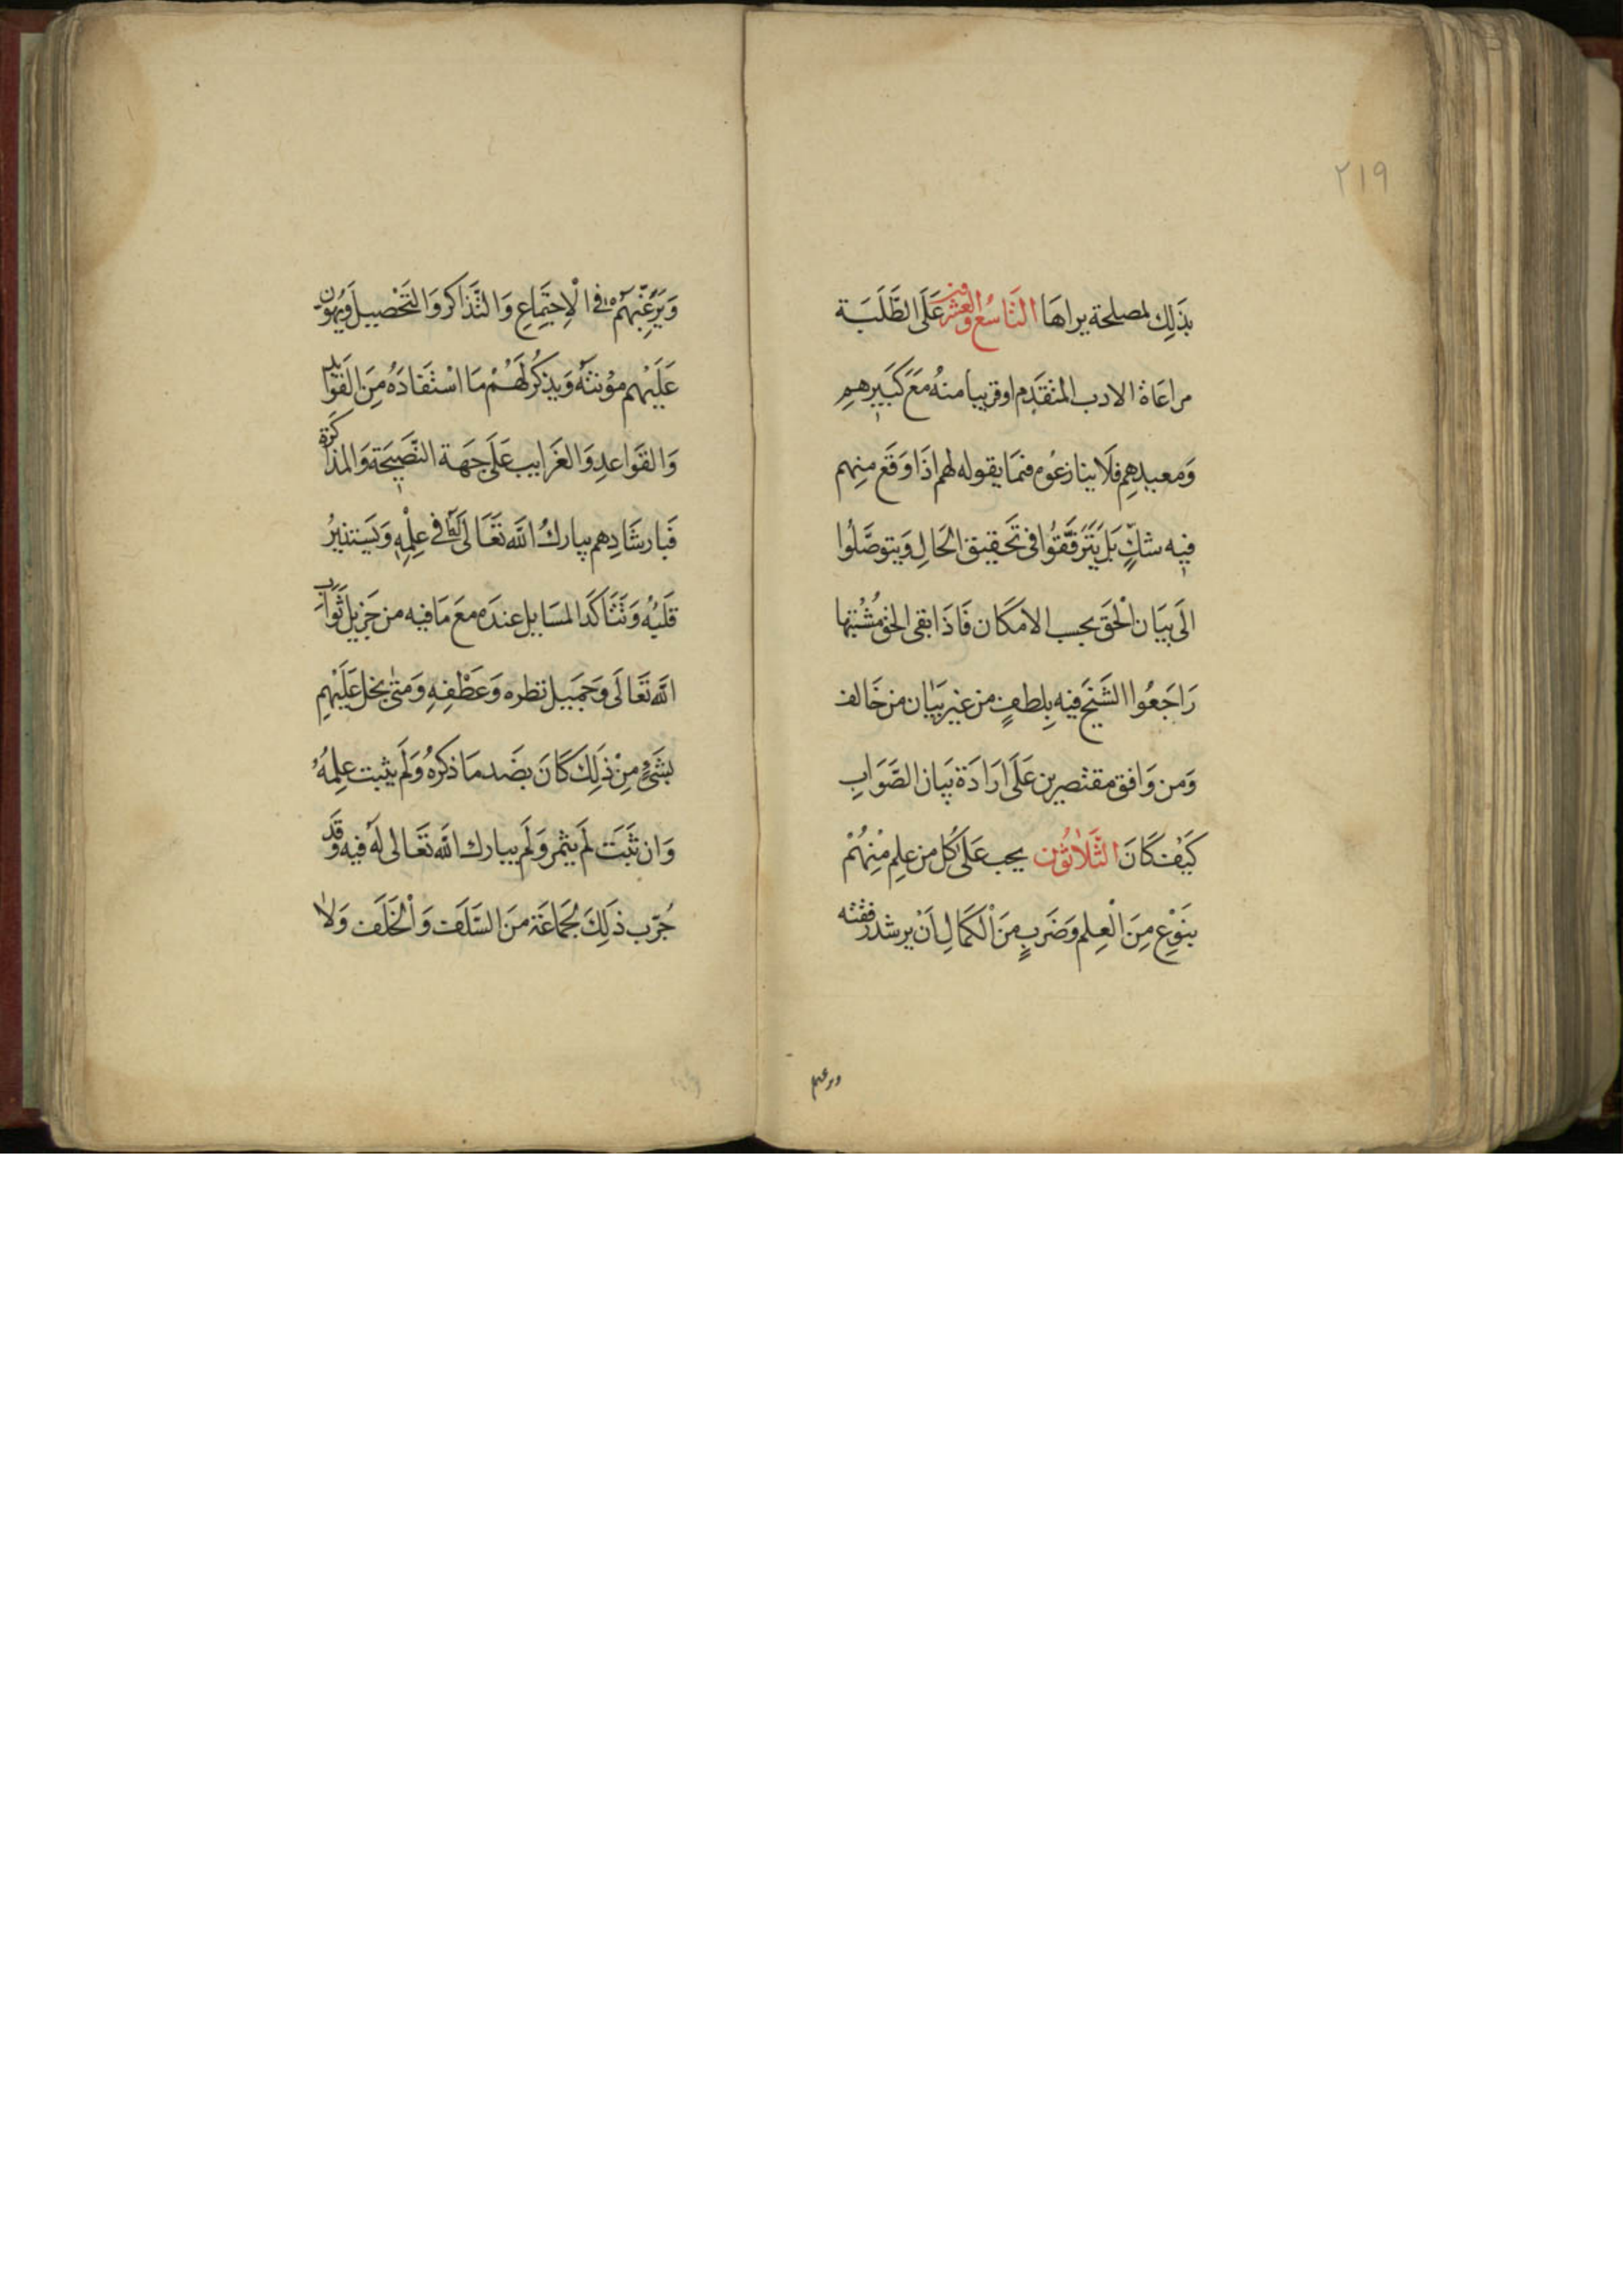 ٢١٩
بذَلِكَ لمصلحة يراهَا التَاسُع والعشرون عَلَى الطَّلَبَة
مراعَاة الادب المتقَدِم او قريبا منهُ مَعَ كَبَيرهمِ
وَمعيدهِم فَلَا ينازعُوه فيمَا يقوله لهم اذَا وَقَع منِهم
فيه شكٍّ بَل يَتَرَفَّقُوا فى تَحقيق الحَالِ وَيتوصَّلُوا
الَى بَيَان الْحَق بحسب الامكَان فَاذَا بقى الحق مُشْتبها
رَاجَعُوا الشَيْخَ فيه بِلطفٍ من غير بَيَان من خَالف
وَمن وَافق مقتصرين عَلَى ارَادَة بَيَان الصَّوَابِ
كَيْف كَانَ الثَّلَاثُون يجب عَلَى كُل من علم مِنْهُمْ
بنَوْعٍ مِنَ الْعِلم وَضَربٍ مِنَ الْكَمَالِ اَنْ يرشد رفقته
ويرغبهم
وَيَرَغِّبَهُمْ فى الْاِجتِمَاعِ وَالتَّذَاكر وَالتَحْصيل وَيُهَوِّن
عَلَيْهم مؤنتَهُ وَيذكُر لَهُمْ مَا اسْتَفَادَهُ مِنَ الفَوَايد
وَالقَوَاعدِ وَالغَرَايب عَلَى جَهَة النَّصَيحَة وَالمذَاكَرة
فَبارشَادِهم يبارك اللّه تَعَالَى لَهُ فى عِلْمِهِ وَيَسَتنيرُ
قَلبُه وَتَتَاكَد المسَايل عندَه معَ مَا فيه من جَزِيل ثَوَاب
اللّه تَعَالَى وَجَمَيل نظره وَعَطْفِهِ وَمَتى بخل عَلَيْهمِ
بشَىءٍ مِنْ ذَلِكَ كَانَ بضَد مَا ذكَرهُ وَلَم يثبت علمهُ
وَان ثَبَتَ لَم يثمر وَلَم يبارك اللّه تَعَالى لَهُ فيه وَقَد
جُرّب ذَلِكَ لجَمَاعَة منَ السَّلَف وَالْخَلَف وَلَا